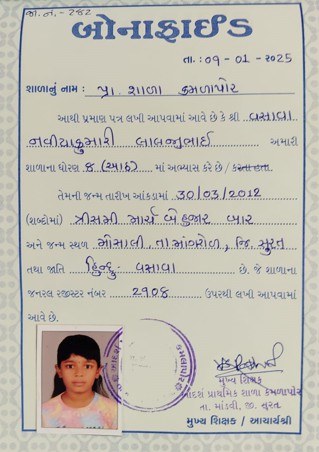 જા.નં.-૨૮૨
બોનાફાઈડ
તા. : 09-01-2025
શાળાનું નામ : પ્રા. શાળા કમળાપોર
આથી પ્રમાણ પત્ર લખી આપવામાં આવે છે કે શ્રી વસાવા
નવીયાકુમારી લાલજીભાઈ અમારી
શાળાના ધોરણ 8 (આઠ) માં અભ્યાસ કરે છે / કરતા હતા.
તેમની જન્મ તારીખ આંકડામાં 30/03/2012
(શબ્દોમાં) ત્રીસમી માર્ચ બે હજાર બાર
અને જન્મ સ્થળ મોસાલી, તા. માંગરોળ, જિ. સુરત
તથા જાતિ હિન્દુ- વસાવા છે. જે શાળાના
જનરલ રજીસ્ટર નંબર 2908 ઉપરથી લખી આપવામાં
આવે છે.
મુખ્ય શિક્ષક
આદર્શ પ્રાથમિક શાળા કમળાપોર
તા. માંડવી, જી. સુરત
મુખ્ય શિક્ષક / આચાર્યશ્રી